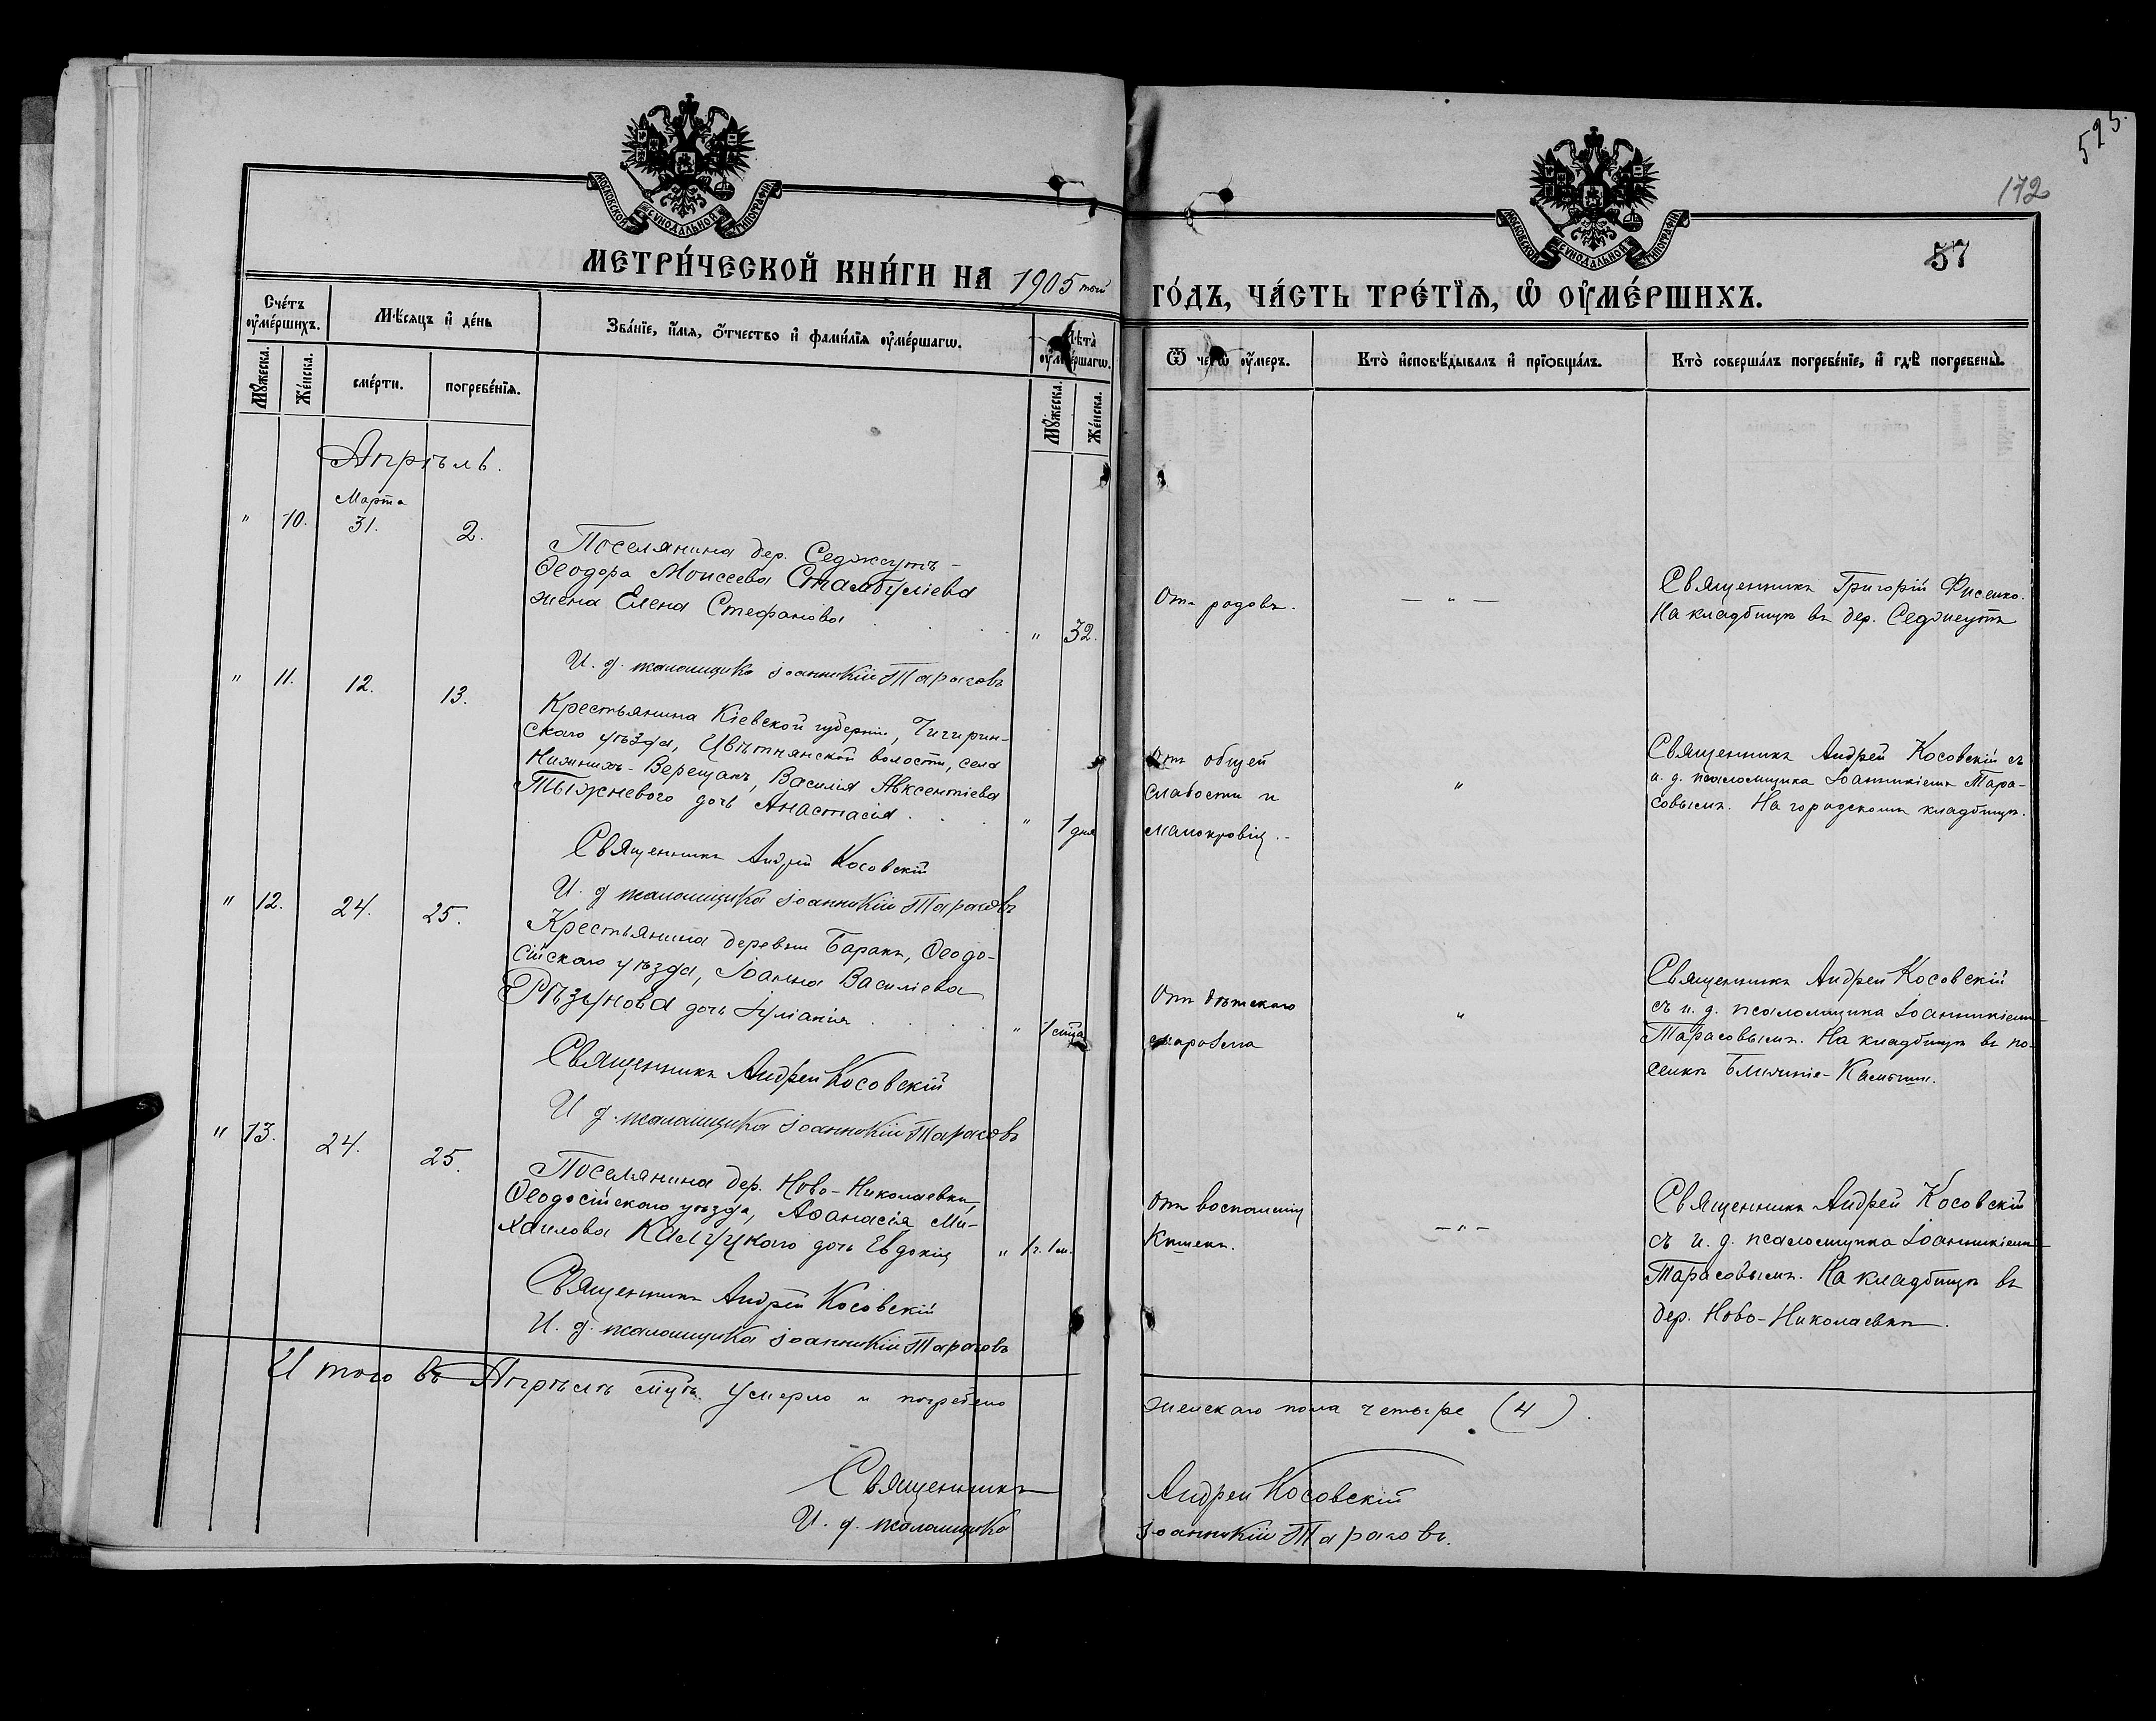 595.
172
57
МОСКОВСКОЙ СУНОДАЛЬНОЙ ТИПОГРАФІИ
МОСКОВСКОЙ СУНОДАЛЬНОЙ ТИПОГРАФІИ
МЕТРИ́ЧЕСКОЙ КНИ́ГИ НА 1905 той ГО́ДЪ, ЧА́СТЬ ТРЕ́ТЇѦ, Ѽ ОУ҆МЕ́РШИХЪ.
Сче́тъ оу҆ме́ршихъ.
Мꙋ́жеска.
Же́нска.
Мѣ́сѧцъ и҆ де́нь
сме́рти.
погребе́нїѧ.
Зва́нїе, и҆́мѧ, ѻ҆́тчество и҆ фами́лїѧ оу҆ме́ршагѡ.
Лѣ́та оу҆ме́ршагѡ.
Мꙋ́жеска.
Же́нска.
Ѿ чегѡ̀ оу҆́меръ.
Кто̀ и҆сповѣ́дывалъ и҆ прїѡбща́лъ.
Кто̀ соверша́лъ погребе́нїе, и҆ гдѣ̀ погребены̀.
Апрѣль.
" 10.
Марта
31.
2.
Поселянина дер. Седжеутъ -
Ѳеодора Моисеева Стамбуліева
жена Елена Стефанова . .
" 32.
Отъ родовъ.
— " —
Священникъ Григорій Фисенко.
На кладбищѣ въ дер. Седжеутъ
И. д. псаломщика Іоанникій Тарасовъ
" 11. 12. 13.
Крестьянина Кіевской губерніи, Чигирин-
скаго уѣзда, Цвѣтнянской волости, села
Нижнихъ-Верещакъ, Василія Авксентіева
Тыжневого дочь Анастасія . . .
" 1 дня
Отъ общей
слабости и
малокровія. -
"
Священникъ Андрей Косовскій съ
и. д. псаломщика Іоанникіемъ Тара-
совымъ. На городскомъ кладбищѣ.
Священникъ Андрей Косовскій
И. д псаломщика Іоанникій Тарасовъ
" 12. 24. 25.
Крестьянина деревни Баракъ, Ѳеодо-
сійскаго уѣзда, Іоанна Василіева
Рѣзунова дочь Іуліанія . . . .
" 1 мца
Отъ дѣтскаго
"
Священникъ Андрей Косовскій
съ и. д. псаломщика Іоанникіемъ
Тарасовымъ. На кладбищѣ въ по-
селкѣ Ближніе-Камыши.
Священникъ Андрей Косовскій
И д. псаломщика Іоанникій Тарасовъ
" 13. 24. 25.
Поселянина дер. Ново-Николаевки,
Ѳеодосійскаго уѣзда, Аѳанасія Ми-
хаилова Калуцкаго дочь Евдокія
" 1 г. 1 м.
Отъ воспаленія
Кишекъ.
— " —
Священникъ Андрей Косовскій
съ и. д. псаломщика Іоанникіемъ
Тарасовымъ. На кладбищѣ въ
дер. Ново-Николаевкѣ.
Священникъ Андрей Косовскій
И. д. псаломщика Іоанникій Тарасовъ
И того въ Апрѣлѣ мцѣ. умерло и погребено женскаго пола четыре (4).
Священникъ Андрей Косовскій
И. д. псаломщика Іоанникій Тарасовъ.